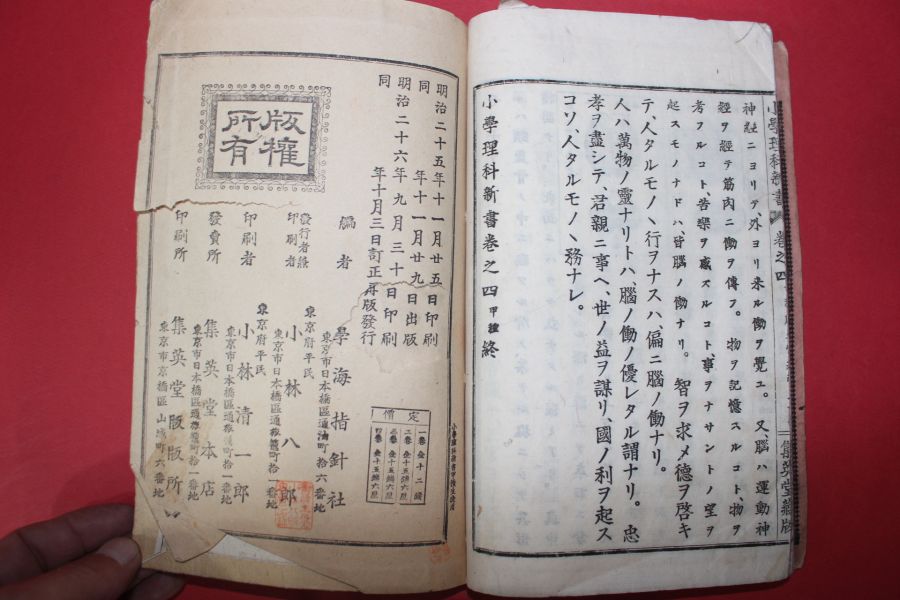 小學理科新書 卷之四
集英堂藏版
神經ニヨリテ、外ヨリ来ル働ヲ覺ユ。又腦ハ運動神
經ヲ經テ筋肉ニ働ヲ傳フ。物ヲ記憶スルコト、物ヲ
考フルコト、苦樂ヲ感ズルコト、事ヲナサントノ望ヲ
起スモノナドハ、皆腦ノ働ナリ。智ヲ求メ德ヲ啓キ
テ、人タルモノヽ行ヲナスハ、偏ニ腦ノ働ナリ。
人ハ萬物ノ靈ナリトハ、腦ノ働ノ優レタル謂ナリ。忠
孝ヲ盡シテ、君親ニ事ヘ、世ノ益ヲ謀リ、國ノ利ヲ起ス
コソ、人タルモノヽ務ナレ。
小學理科新書卷之四 甲種 終
明治二十五年十一月廿五日印刷
同 年十一月廿九日出版
明治二十六年九月三十日印刷
同 年十月三日訂正再版發行
版權所有
定價
一卷 金十二錢
編者 學海指針社
東京市日本橋區通油町拾六番地
東京府平民
發行者兼印刷者 小林八郎
東京市日本橋區通旅籠町拾一番地
東京府平民
印刷者 小林清一郎
東京市日本橋區通旅籠町拾一番地
發賣所 集英堂本店
東京市日本橋區通旅籠町拾一番地
印刷所 集英堂販版所
東京市京橋區山城町六番地